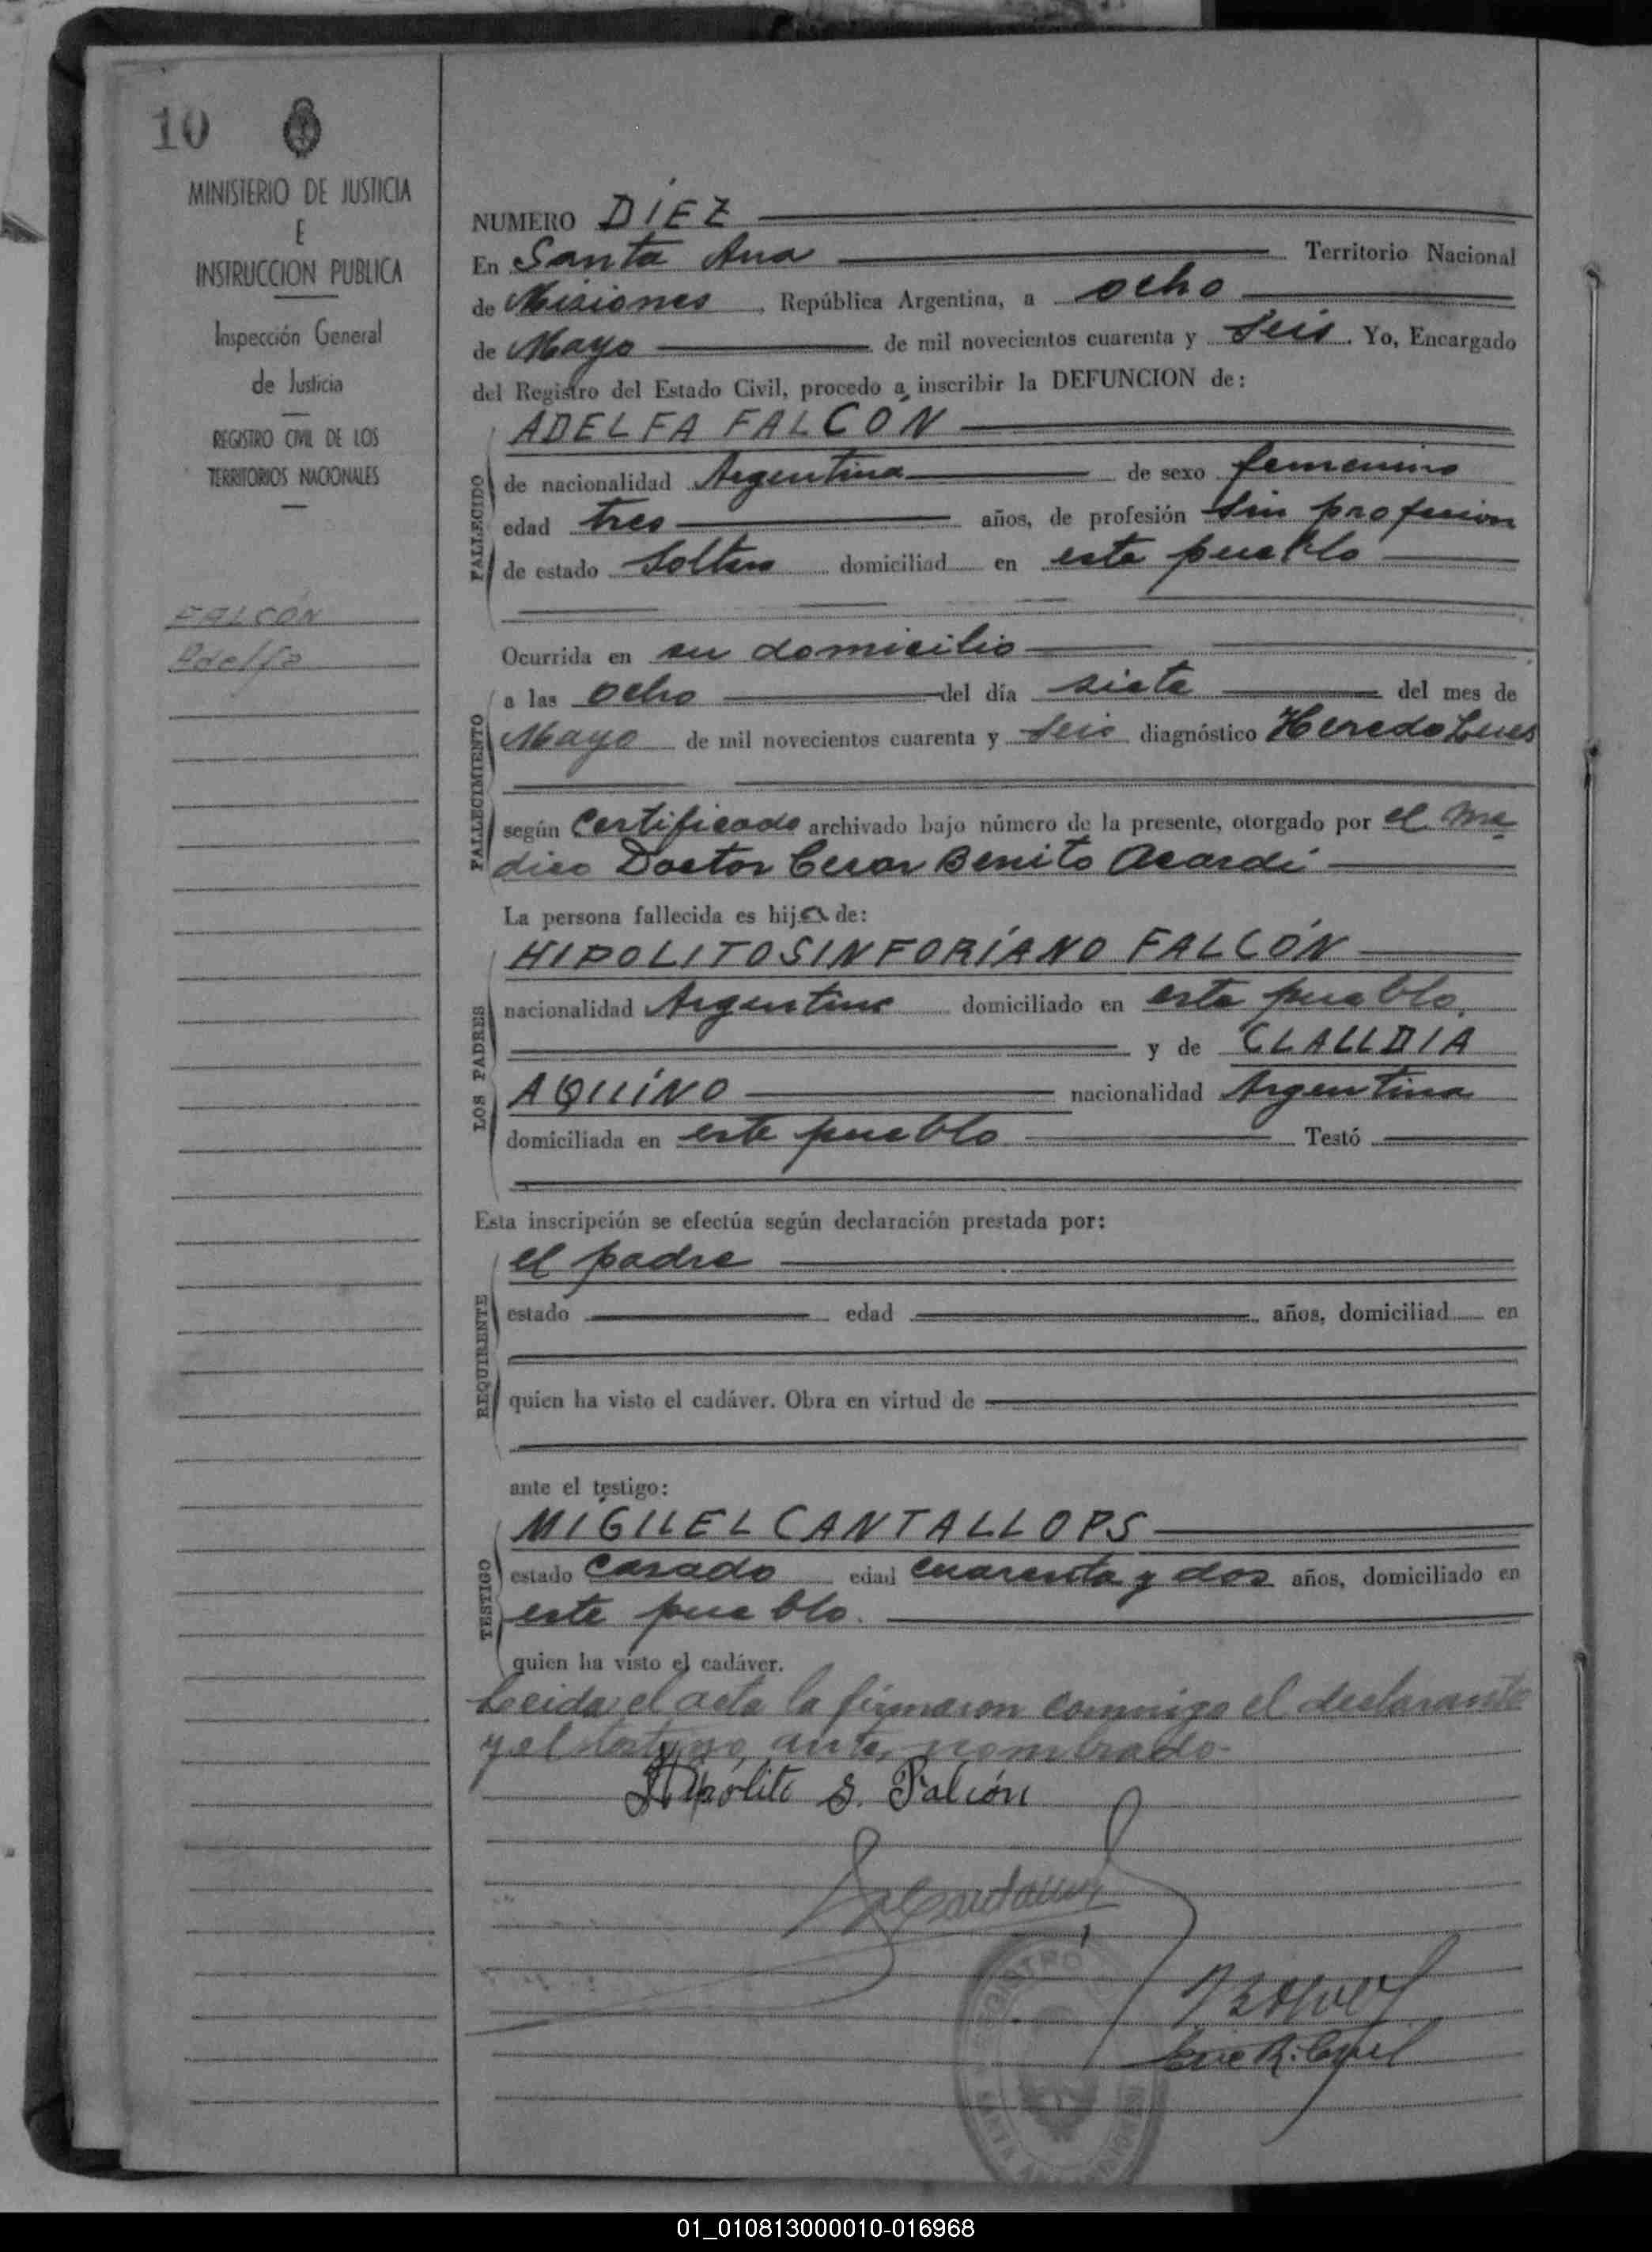 10
MINISTERIO DE JUSTICIA
E
INSTRUCCION PUBLICA
Inspección General
de Justicia
REGISTRO CIVIL DE LOS
TERRITORIOS NACIONALES
FALCÓN
Adelfa
NUMERO DÍEZ
En Santa Ana Territorio Nacional
de Misiones, República Argentina, a ocho
de Mayo de mil novecientos cuarenta y seis. Yo, Encargado
del Registro del Estado Civil, procedo a inscribir la DEFUNCION de:
FALLECIDO
ADELFA FALCÓN
de nacionalidad Argentina de sexo femenino
edad tres años, de profesión sin profesion
de estado soltera domiciliad en este pueblo
Ocurrida en su domicilio
FALLECIMIENTO
a las ocho del día siete del mes de
Mayo de mil novecientos cuarenta y seis diagnóstico Heredo Lues
según Certificado archivado bajo número de la presente, otorgado por el me-
dico Doctor Cesar Benito Acardi
La persona fallecida es hija de:
LOS PADRES
HIPOLITO SINFORÍANO FALCÓN
nacionalidad Argentino domiciliado en este pueblo,
y de CLAUDIA
AQUÍNO nacionalidad Argentina
domiciliada en este pueblo Testó
Esta inscripción se efectúa según declaración prestada por:
REQUIRENTE
el padre
estado edad años, domiciliad en
quien ha visto el cadáver. Obra en virtud de
ante el testigo:
TESTIGO
MÍGUEL CANTALLOPS
estado Casado edad cuarenta y dos años, domiciliado en
este pueblo.
quien ha visto el cadáver.
Leida el acta la firmaron conmigo el declarante
y el testigo ante nombrado.
Hipólito S. Falcón
REGISTRO
SANTA ANA
01_010813000010-016968